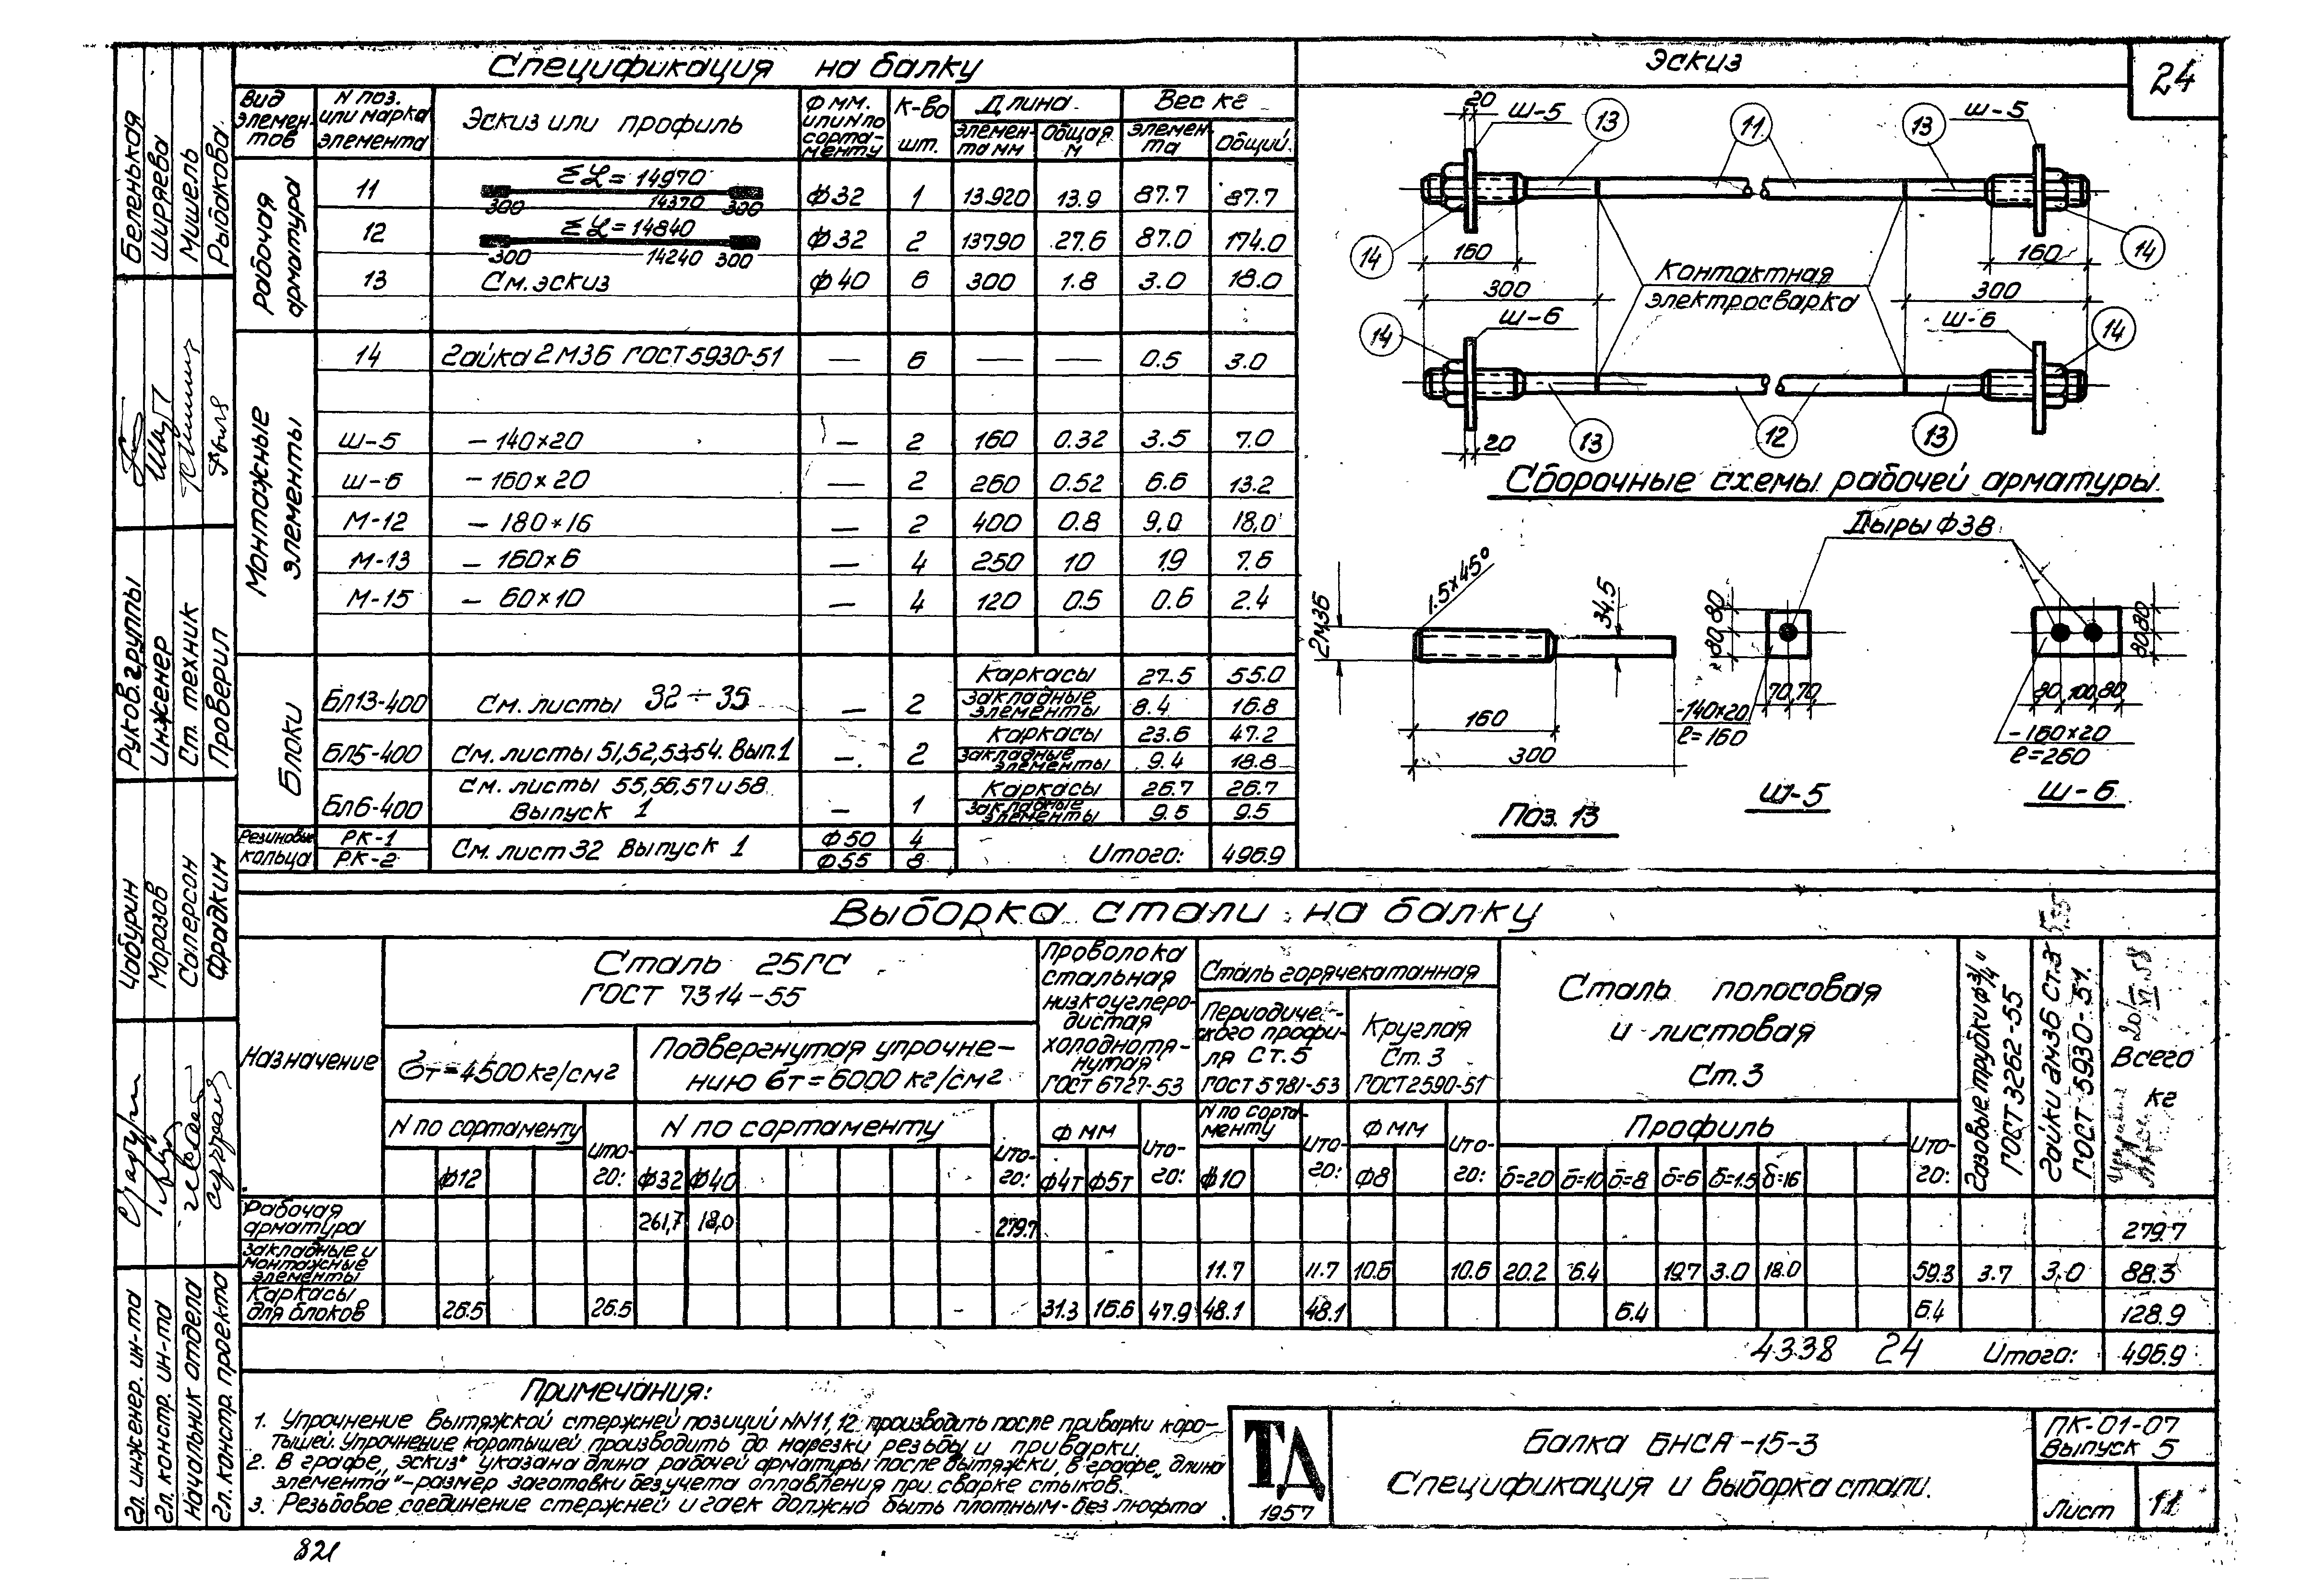 24
Спецификация на балку
Вид элемен-тов | N поз. или марка элемента | Эскиз или профиль | Ф мм. или N по сорта-менту | К-во шт. | Длина элемен-та мм | Длина Общая м | Вес кг элемен-та | Вес кг Общий
Рабочая арматура
11 | Σℒ=14970 300 14370 300 | Ф32 | 1 | 13.920 | 13.9 | 87.7 | 87.7
12 | Σℒ=14840 300 14240 300 | Ф32 | 2 | 13790 | 27.6 | 87.0 | 174.0
13 | См. эскиз | Ф40 | 6 | 300 | 1.8 | 3.0 | 18.0
Монтажные элементы
14 | Гайка 2М36 ГОСТ 5930-51 | — | 6 | — | — | 0.5 | 3.0
Ш-5 | – 140×20 | — | 2 | 160 | 0.32 | 3.5 | 7.0
Ш-6 | – 160×20 | — | 2 | 260 | 0.52 | 6.6 | 13.2
М-12 | – 180×16 | — | 2 | 400 | 0.8 | 9.0 | 18.0
М-13 | – 160×6 | — | 4 | 250 | 10 | 1.9 | 7.6
М-15 | – 60×10 | — | 4 | 120 | 0.5 | 0.6 | 2.4
Блоки
БЛ13-400 | См. листы 32÷35 | — | 2 | Каркасы | 27.5 | 55.0
Закладные элементы | 8.4 | 16.8
БЛ5-400 | См. листы 51,52,53,54. Вып.1 | — | 2 | Каркасы | 23.6 | 47.2
Закладные элементы | 9.4 | 18.8
БЛ6-400 | См. листы 55,56,57 и 58 Выпуск 1 | — | 1 | Каркасы | 26.7 | 26.7
Закладные элементы | 9.5 | 9.5
Резиновые кольца
РК-1 | См. лист 32 Выпуск 1 | Ф50 | 4
РК-2 | Ф55 | 8
Итого: 496.9
Эскиз
20 Ш-5 13 11 13 Ш-5
14 160 160 14
300 Контактная электросварка 300
14 Ш-6 Ш-6 14
13 12 13
20
Сборочные схемы рабочей арматуры
Дыры Ф38
2М36 1.5×45° 34.5
160
300
Поз. 13
80 80
70 70
-140×20
ℓ=160
Ш-5
80 80
80 100 80
-160×20
ℓ=260
Ш-6
Выборка стали на балку
Назначение
Сталь 25ГС
ГОСТ 7314-55
бт=4500 кг/см2
Подвергнутая упрочне-
нию бт=6000 кг/см2
Проволока стальная низкоуглеро-дистая холоднотя-нутая ГОСТ 6727-53
Сталь горячекатанная
Периодиче-ского профи-ля Ст.5 ГОСТ 5781-53
Круглая Ст.3 ГОСТ 2590-51
Сталь полосовая
и листовая
Ст.3
Газовые трубки ф3/4" ГОСТ 3262-55
Гайки 2м36 Ст.3 ГОСТ 5930-51.
Всего кг
N по сортаменту | Ито-го: | N по сортаменту | Ито-го: | Ф мм | Ито-го: | N по сорта-менту | Ито-го: | Ф мм | Ито-го: | Профиль | Ито-го:
Ф12 | Ф32 | Ф40 | Ф4т | Ф5т | Ф10 | Ф8 | б=20 | б=10 | б=8 | б=6 | б=1.5 | б=16
Рабочая арматура | 261,7 | 18,0 | 279.7 | 279.7
Закладные и монтажные элементы | 11.7 | 11.7 | 10.6 | 10.6 | 20.2 | 6.4 | 19.7 | 3.0 | 18.0 | 59.3 | 3.7 | 3.0 | 88.3
Каркасы для блоков | 26.5 | 26.5 | 31.3 | 16.6 | 47.9 | 48.1 | 48.1 | 6.4 | 6.4 | 128.9
4338 24 Итого: 496.9
Примечания:
1. Упрочнение вытяжкой стержней позиций NN11,12 производить после приварки коро-
тышей. Упрочнение коротышей производить до нарезки резьбы и приварки.
2. В графе „эскиз" указана длина рабочей арматуры после вытяжки, в графе „длина
элемента"–размер заготовки без учета оплавления при сварке стыков.
3. Резьбовое соединение стержней и гаек должно быть плотным-без люфта
ТД
1957
Балка БНСА-15-3
Спецификация и выборка стали.
ПК-01-07
Выпуск 5
Лист 11
Беленькая
Ширяева
Мишель
Рыбакова
Руков. группы
Инженер
Ст. техник
Проверил
Чабурин
Морозов
Салерсон
Фрадкин
Гл. инженер. ин-та
Гл. констр. ин-та
Начальник отдела
Гл. констр. проекта
821